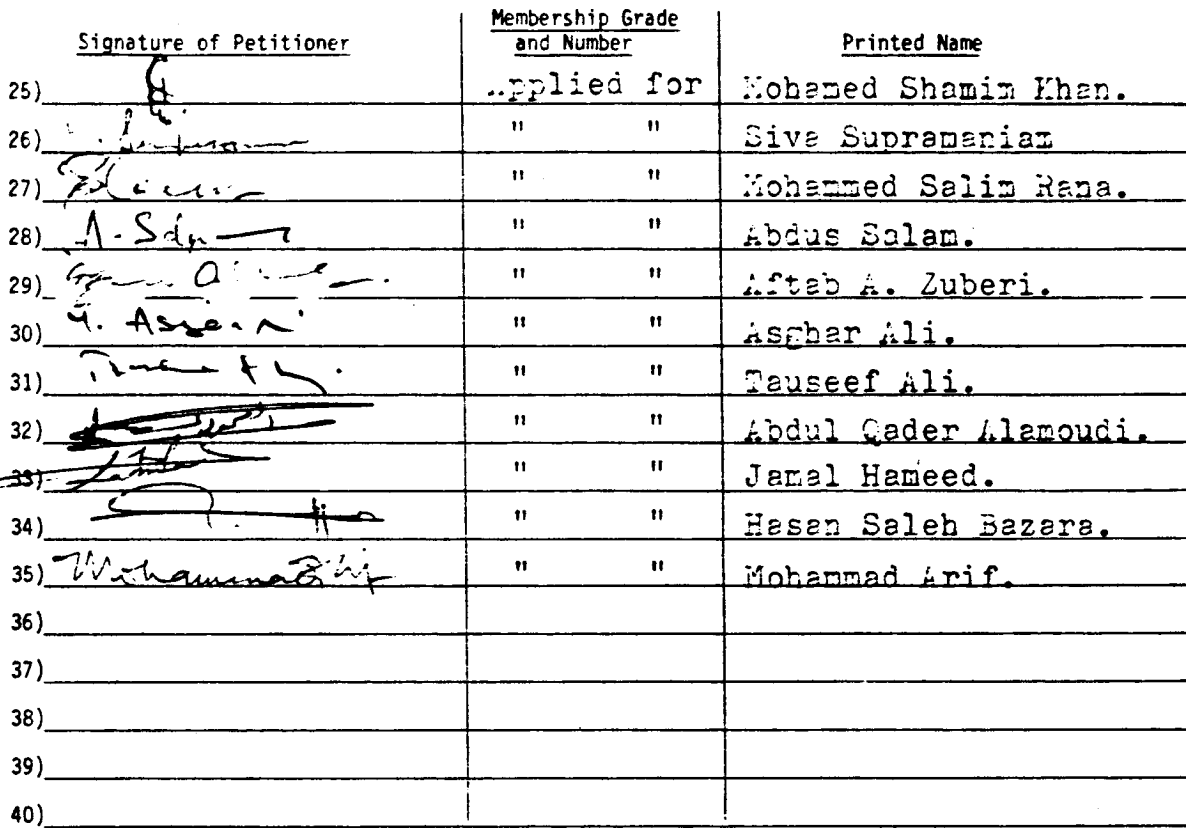 Signature of Petitioner Membership Grade and Number Printed Name
25) Applied for Mohamed Shamim Khan.
26) " " Siva Supramaniam
27) " " Mohammed Salim Rana.
28) A. Salam " " Abdus Salam.
29) " " Aftab A. Zuberi.
30) " " Asghar Ali.
31) " " Tauseef Ali.
32) " " Abdul Qader Alamoudi.
33) " " Jamal Hameed.
34) " " Hasan Saleh Bazara.
35) Mohammad Arif " " Mohammad Arif.
36)
37)
38)
39)
40)